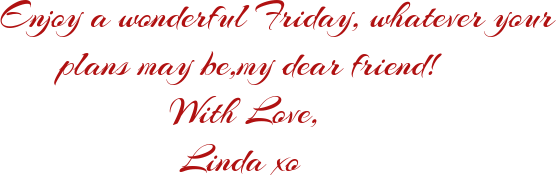 Enjoy a wonderful Friday, whatever your
plans may be,my dear friend!
With Love,
Linda xo